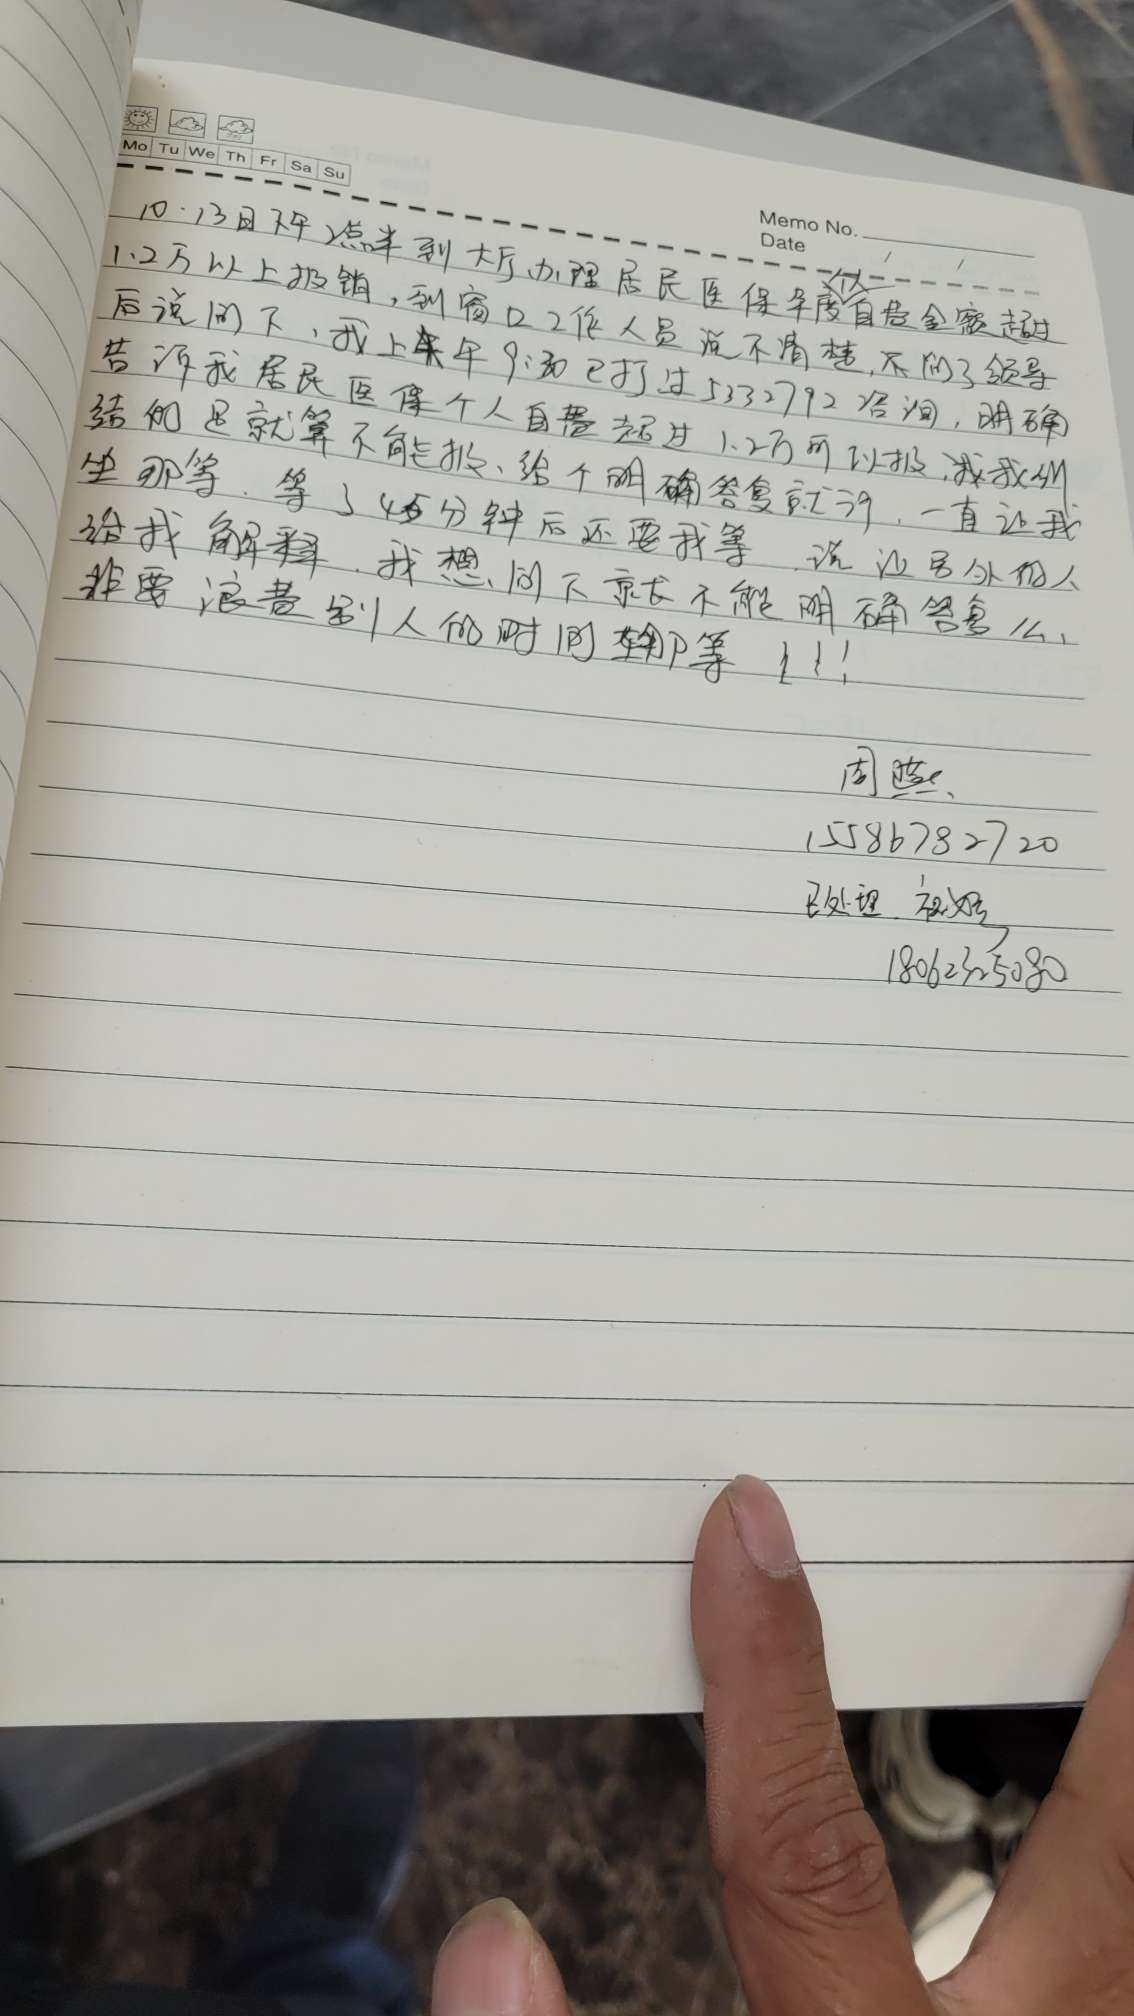 Mo Tu We Th Fr Sa Su
Memo No.
Date
10.13日下午2点半到大厅办理居民医保年度自费金额超过
1.2万以上报销,到窗口工作人员说不清楚,问了领导
后说问下,我上午9:30已打过5332792咨询,明确
告诉我居民医保个人自费超过1.2万可以报,我我们
结 是就算不能报、给个明确答复就行,一直让我
坐那等.等了45分钟后还要我等 说让另外的人
给我解释.我想问下 不能明确答复么、
非要浪费别人的时间 那等!!!
周燕
15586782720
已处理
18062325080